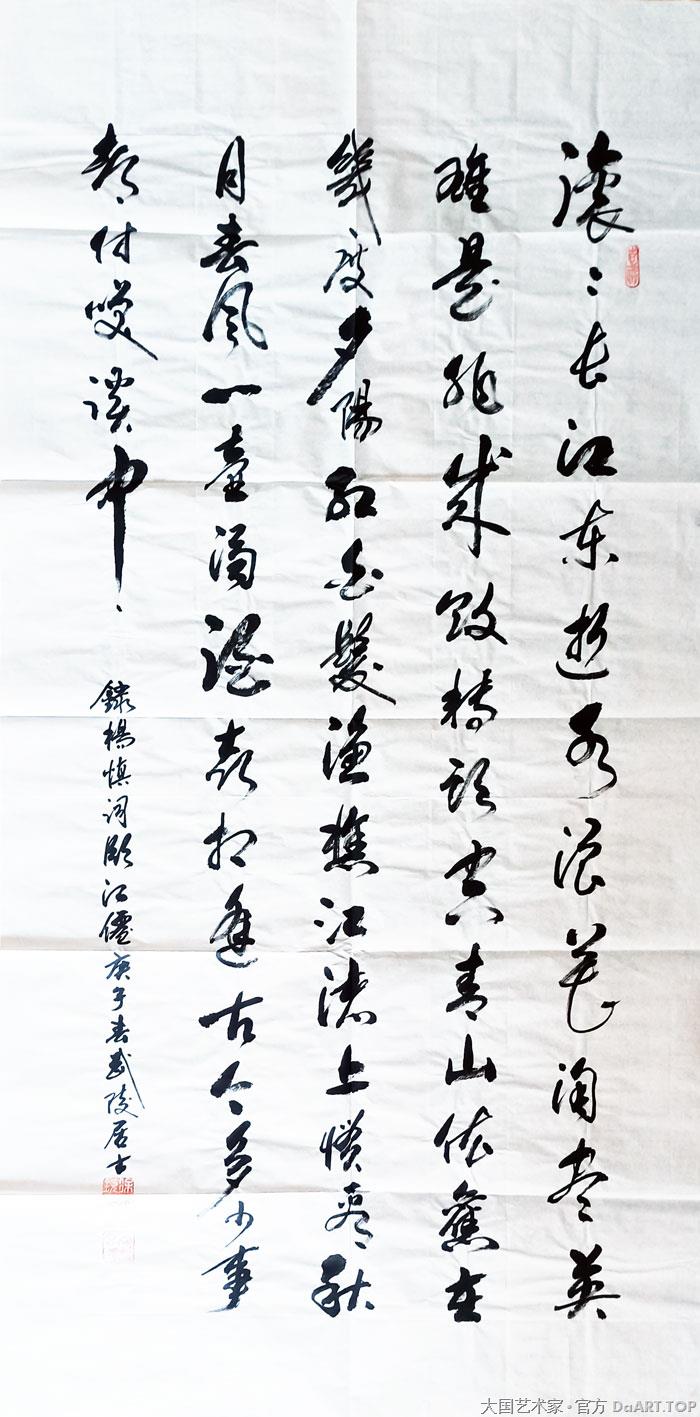 滚〻长江东逝水浪花淘尽英
雄是非成败转头空青山依舊在
幾度夕陽红白髮渔樵江渚上惯看秋
月春风一壶浊酒喜相逢古今多少事
都付笑谈中、
錄楊慎词临江僊庚子春武陵居士
大国艺术家·官方 DaART.TOP